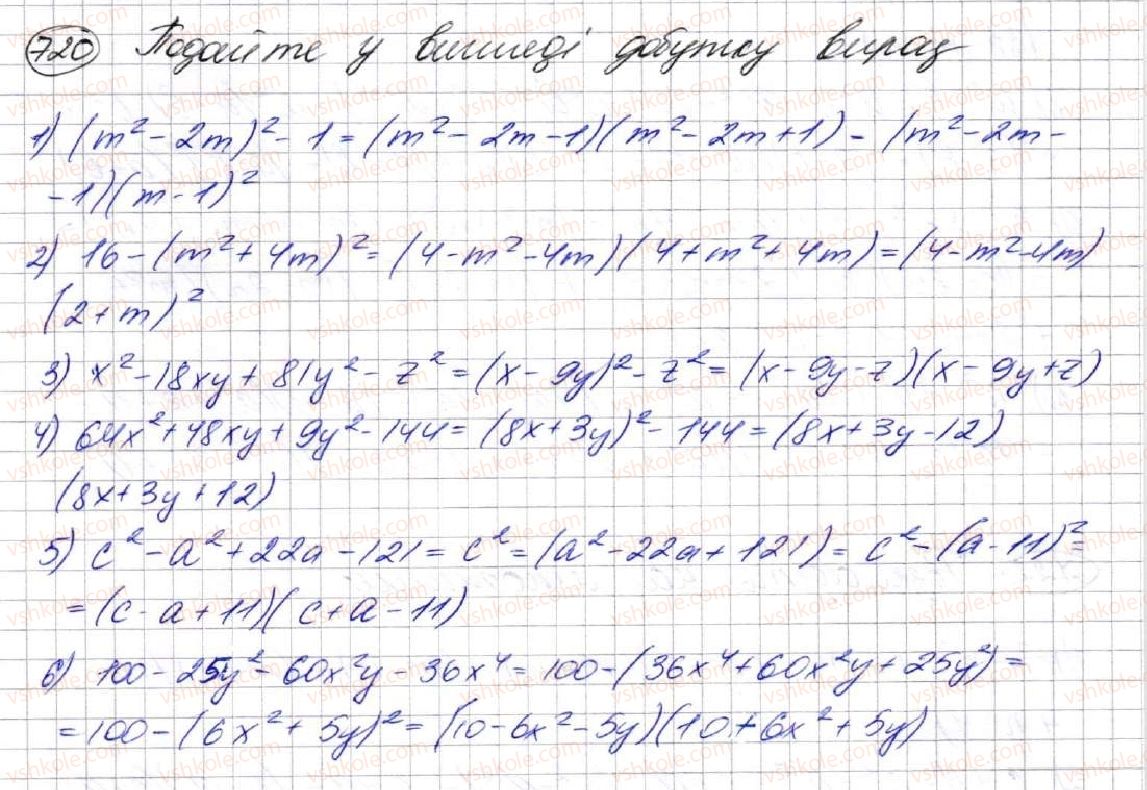 720 Подайте у вигляді добутку вираз
1) (m² - 2m)² - 1 = (m² - 2m - 1)(m² - 2m + 1) - (m² - 2m -
- 1)(m - 1)²
2) 16 - (m² + 4m)² = (4 - m² - 4m)(4 + m² + 4m) = (4 - m² - 4m)
(2 + m)²
3) x² - 18xy + 81y² - z² = (x - 9y)² - z² = (x - 9y - z)(x - 9y + z)
4) 64x² + 48xy + 9y² - 144 = (8x + 3y)² - 144 = (8x + 3y - 12)
(8x + 3y + 12)
5) c² - a² + 22a - 121 = c² = (a² - 22a + 121) = c² - (a - 11)² =
= (c - a + 11)(c + a - 11)
6) 100 - 25y² - 60x²y - 36x⁴ = 100 - (36x⁴ + 60x²y + 25y²) =
= 100 - (6x² + 5y)² = (10 - 6x² - 5y)(10 + 6x² + 5y)